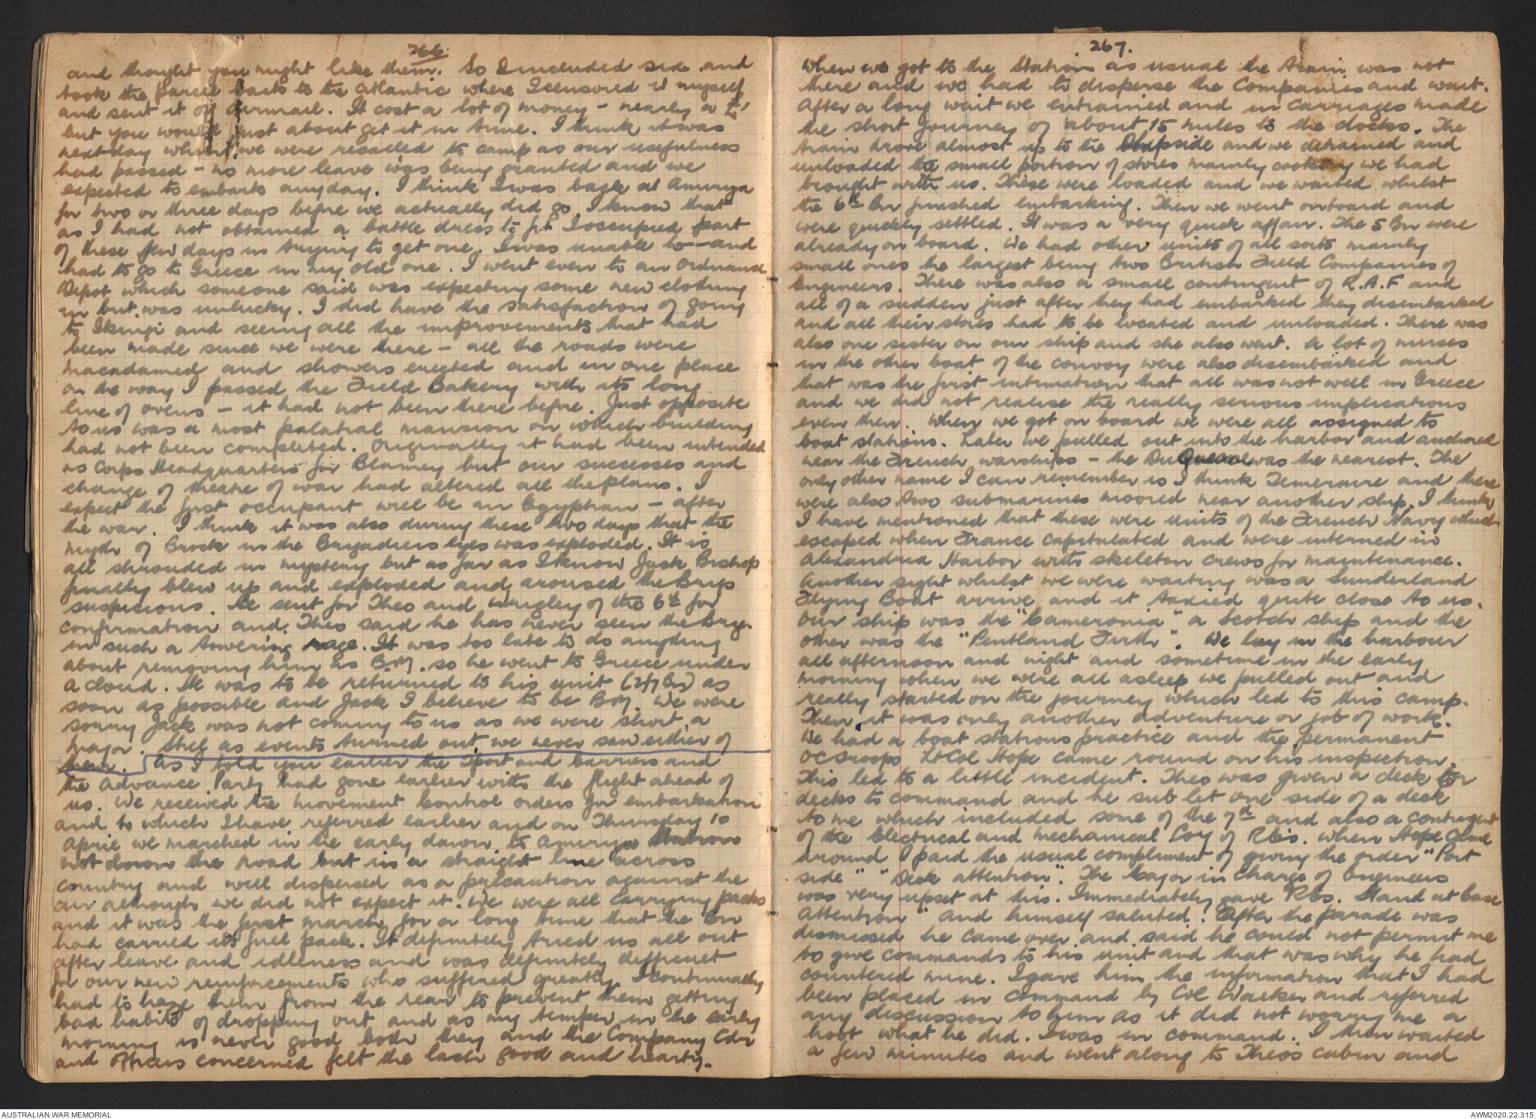 266.
and thought you might like them. So I included six and
took the parcel back to the Atlantic where I censored it myself
and sent it off airmail. It cost a lot of money - nearly a £1
but you would just about get it in time. I think it was
next day when we were recalled to camp as our usefulness
had passed - no more leave was being granted and we
expected to embark anyday. I think I was back at Amiriya
for two or three days before we actually did go. I know that
as I had not obtained a battle dress to fit I occupied part
of these few days in trying to get one. I was unable to - and
had to go to Greece in my old one. I went even to an Ordnance
Depot which someone said was expecting some new clothing
in but was unlucky. I did have the satisfaction of going
to Ikingi and seeing all the improvements that had
been made since we were there - all the roads were
macadamed and showers erected and in one place
on the way I passed the Field Bakery with its long
line of ovens - it had not been there before. Just opposite
to us was a most palatial mansion on which building
had not been completed. Originally it had been intended
as Corps Headquarters for Blamey but our successes and
change of theatre of war had altered all the plans. I
expect the first occupant will be an Egyptian - after
the war. I think it was also during these two days that the
myth of Brock in the Brigadiers eyes was exploded. It is
all shrouded in mystery but as far as I know Jack Bishop
finally blew up and exploded and aroused the Brigs
suspicions. He sent for Theo and Wrigley of the 6th for
confirmation and Theo said he has never seen the Brig.
in such a towering rage. It was too late to do anything
about removing him as B.M. so he went to Greece under
a cloud. He was to be returned to his unit (2/7 Bn) as
soon as possible and Jack I believe to be B.M. We were
sorry Jack was not coming to us as we were short a
major. Still as events turned out we never saw either of
them. As I told you earlier the Tport and carriers and
the Advance Party had gone earlier with the flight ahead of
us. We received the Movement Control orders for embarkation
and to which I have referred earlier and on Thursday 10
April we marched in the early dawn to Amiriya Station
not down the road but in a straight line across
country and well dispersed as a precaution against the
air although we did not expect it. We were all carrying packs
and it was the first march for a long time that the Bn
had carried its full pack. It definitely tried us all out
after leave and idleness and was definitely difficult
for our new reinforcements who suffered greatly. I continually
had to haze them from the rear to prevent them getting
bad habits of dropping out and as my temper in the early
morning is never good both they and the Company Cdr
and officers concerned felt the lash good and hearty.
267.
When we got to the Station as usual the train was not
there and we had to disperse the Companies and wait.
After a long wait we entrained and in carriages made
the short journey of about 15 miles to the docks. The
train drove almost up to the shipside and we detrained and
unloaded the small portion of stores mainly cooking we had
brought with us. These were loaded and we waited whilst
the 6th Bn finished embarking. Then we went onboard and
were quickly settled. It was a very quick affair. The 5 Bn were
already on board. We had other units of all sorts mainly
small ones the largest being two British Field Companies of
Engineers. There was also a small contingent of R.A.F and
all of a sudden just after they had embarked they disembarked
and all their stores had to be located and unloaded. There was
also one sister on our ship and she also went. A lot of nurses
in the other boat of the convoy were also disembarked and
that was the first intimation that all was not well in Greece
and we did not realise the really serious implications
even then. When we got on board we were all assigned to
boat stations. Later we pulled out into the harbor and anchored
near the French warships - the Duquesne was the nearest. The
only other name I can remember is I think Temeraire and there
were also two submarines moored near another ship. I think
I have mentioned that these were units of the French Navy which
escaped when France capitulated and were interned in
Alexandria Harbor with skeleton crews for maintenance.
Another sight whilst we were waiting was a Sunderland
Flying Boat arrive and it taxied quite close to us.
Our ship was the "Cameronia" a Scotch ship and the
other was the "Pentland Firth". We lay in the harbour
all afternoon and night and sometime in the early
morning when we were all asleep we pulled out and
really started on the journey which led to this camp.
Then it was only another adventure or job of work.
We had a boat stations practice and the permanent
OC Troops Lt Col Hope came round on his inspection.
This led to a little incident. Theo was given a deck or
decks to command and he sub let one side of a deck
to me which included some of the 7th and also a contingent
of the Electrical and Mechanical Coy of REs. When Hope came
around I paid the usual compliment of giving the order "Port
side" "Deck attention". The Major in charge of Engineers
was very upset at this. Immediately gave "REs. Stand at ease
Attention" and himself saluted. After the parade was
dismissed he came over and said he could not permit me
to give commands to his unit and that was why he had
countered mine. I gave him the information that I had
been placed in command by Col Walker and referred
any discussion to him as it did not worry me a
hoot what he did. I was in command. I then waited
a few minutes and went along to Theos cabin and
AUSTRALIAN WAR MEMORIAL
AWM2020.22.315